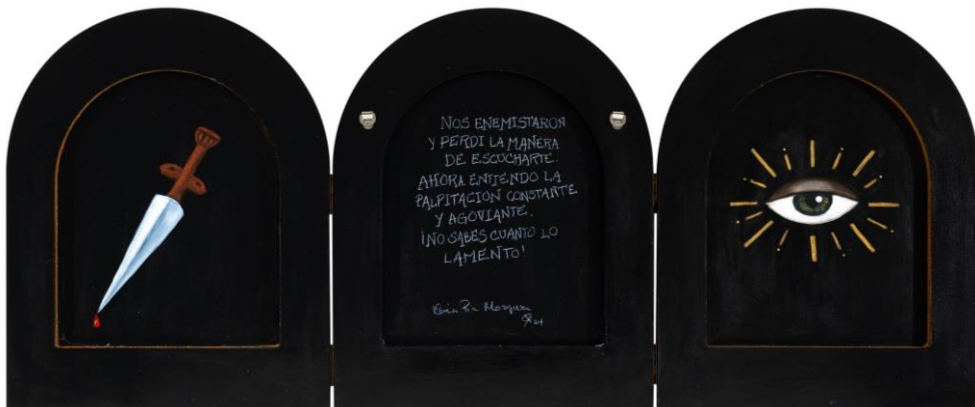 NOS ENEMISTARON
Y PERDI LA MANERA
DE ESCUCHARTE.
AHORA ENTIENDO LA
PALPITACIÓN CONSTANTE
Y AGOVIANTE.
¡NO SABES CUANTO LO
LAMENTO!